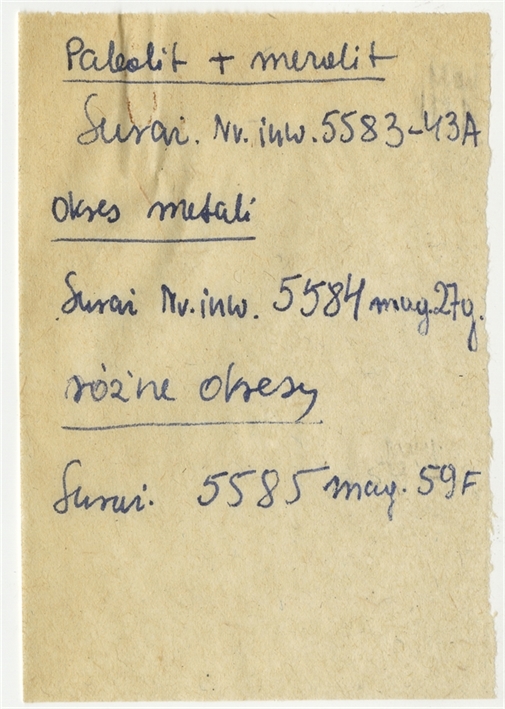 Paleolit + mezolit
Suraż. Nr. inw. 5583-43A
okres metali
Suraż Nr. inw. 5584 mag. 27g.
różne okresy
Suraż. 5585 mag. 59F